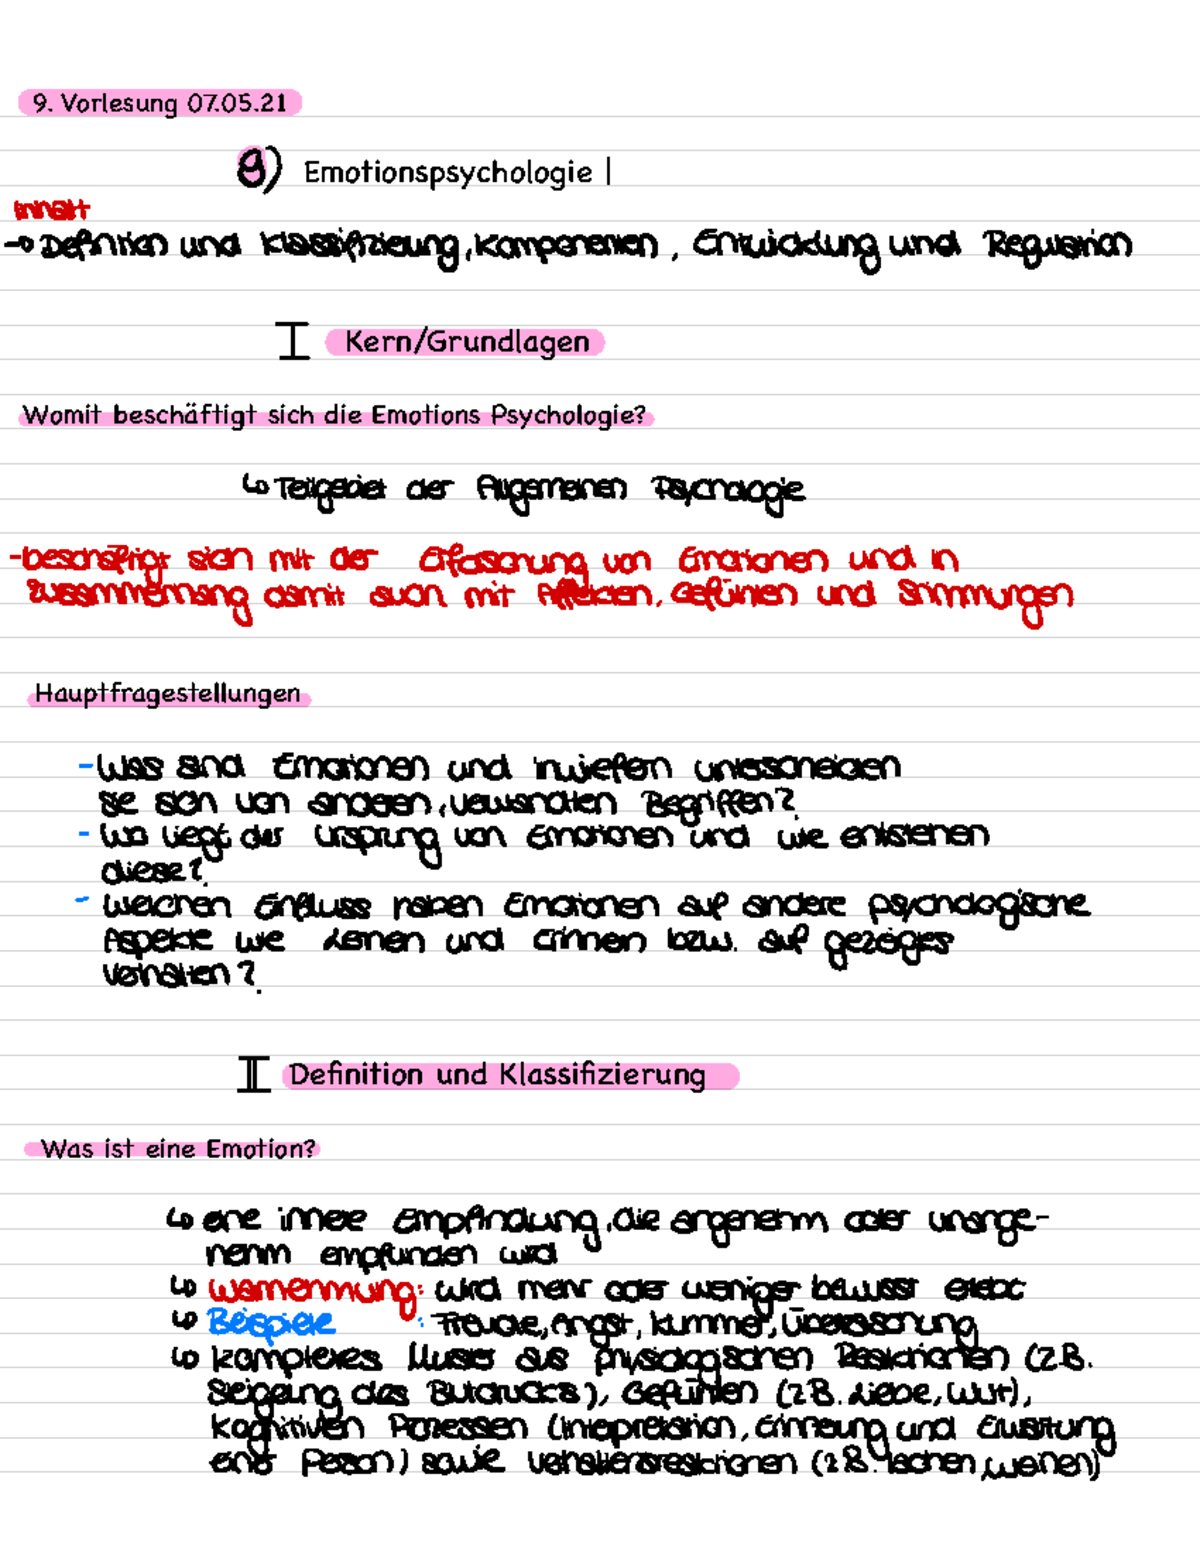 9. Vorlesung 07.05.21
9) Emotionspsychologie |
Inhalt
→ Definition und Klassifizierung, Komponenten, Entwicklung und Regulation
I Kern/Grundlagen
Womit beschäftigt sich die Emotions Psychologie?
↳ Teilgebiet der Allgemeinen Psychologie
-beschäftigt sich mit der Erfassung von Emotionen und in
Zusammenhang damit auch mit Affekten, Gefühlen und Stimmungen
Hauptfragestellungen
- Was sind Emotionen und inwiefern unterscheiden
sie sich von anderen, verwandten Begriffen?
- Wo liegt der Ursprung von Emotionen und wie entstehen
diese?
- Welchen Einfluss haben Emotionen auf andere psychologische
Aspekte wie Lernen und Erinnern bzw. auf gezeigtes
Verhalten?
II Definition und Klassifizierung
Was ist eine Emotion?
↳ eine innere Empfindung, die angenehm oder unange-
nehm empfunden wird
↳ Wahrnehmung: wird mehr oder weniger bewusst erlebt
↳ Beispiele : Freude, Angst, Kummer, Überraschung
↳ komplexes Muster aus physiologischen Reaktionen (z.B.
Steigerung des Blutdrucks), Gefühlen (z.B. Liebe, Wut),
kognitiven Prozessen (Interpretation, Erinnerung und Erwartung
einer Person) sowie Verhaltensreaktionen (z.B. lachen, weinen)